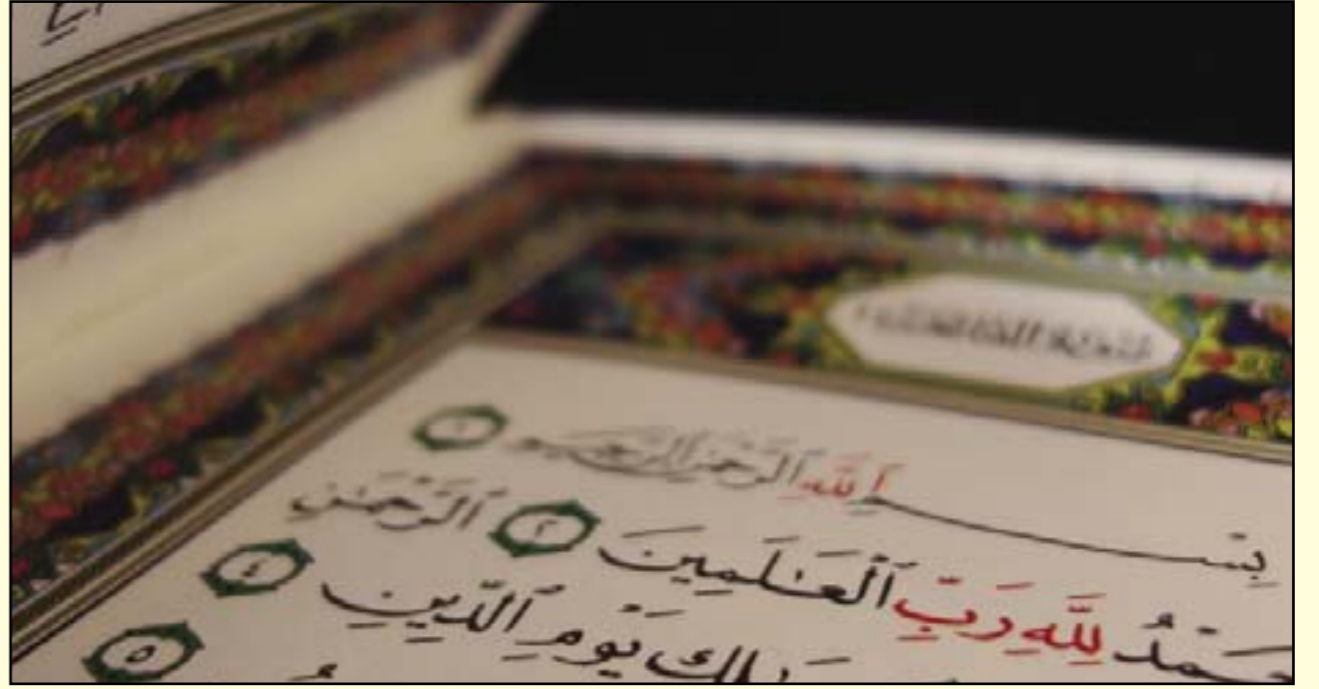 سُورَةُ الفَاتِحَةِ
بِسْمِ ٱللَّهِ ٱلرَّحْمَٰنِ ٱلرَّحِيمِ ١
حَمْدُ لِلَّهِ رَبِّ ٱلْعَٰلَمِينَ ٢ ٱلرَّحْمَٰنِ
مَٰلِكِ يَوْمِ ٱلدِّينِ ٤
٥